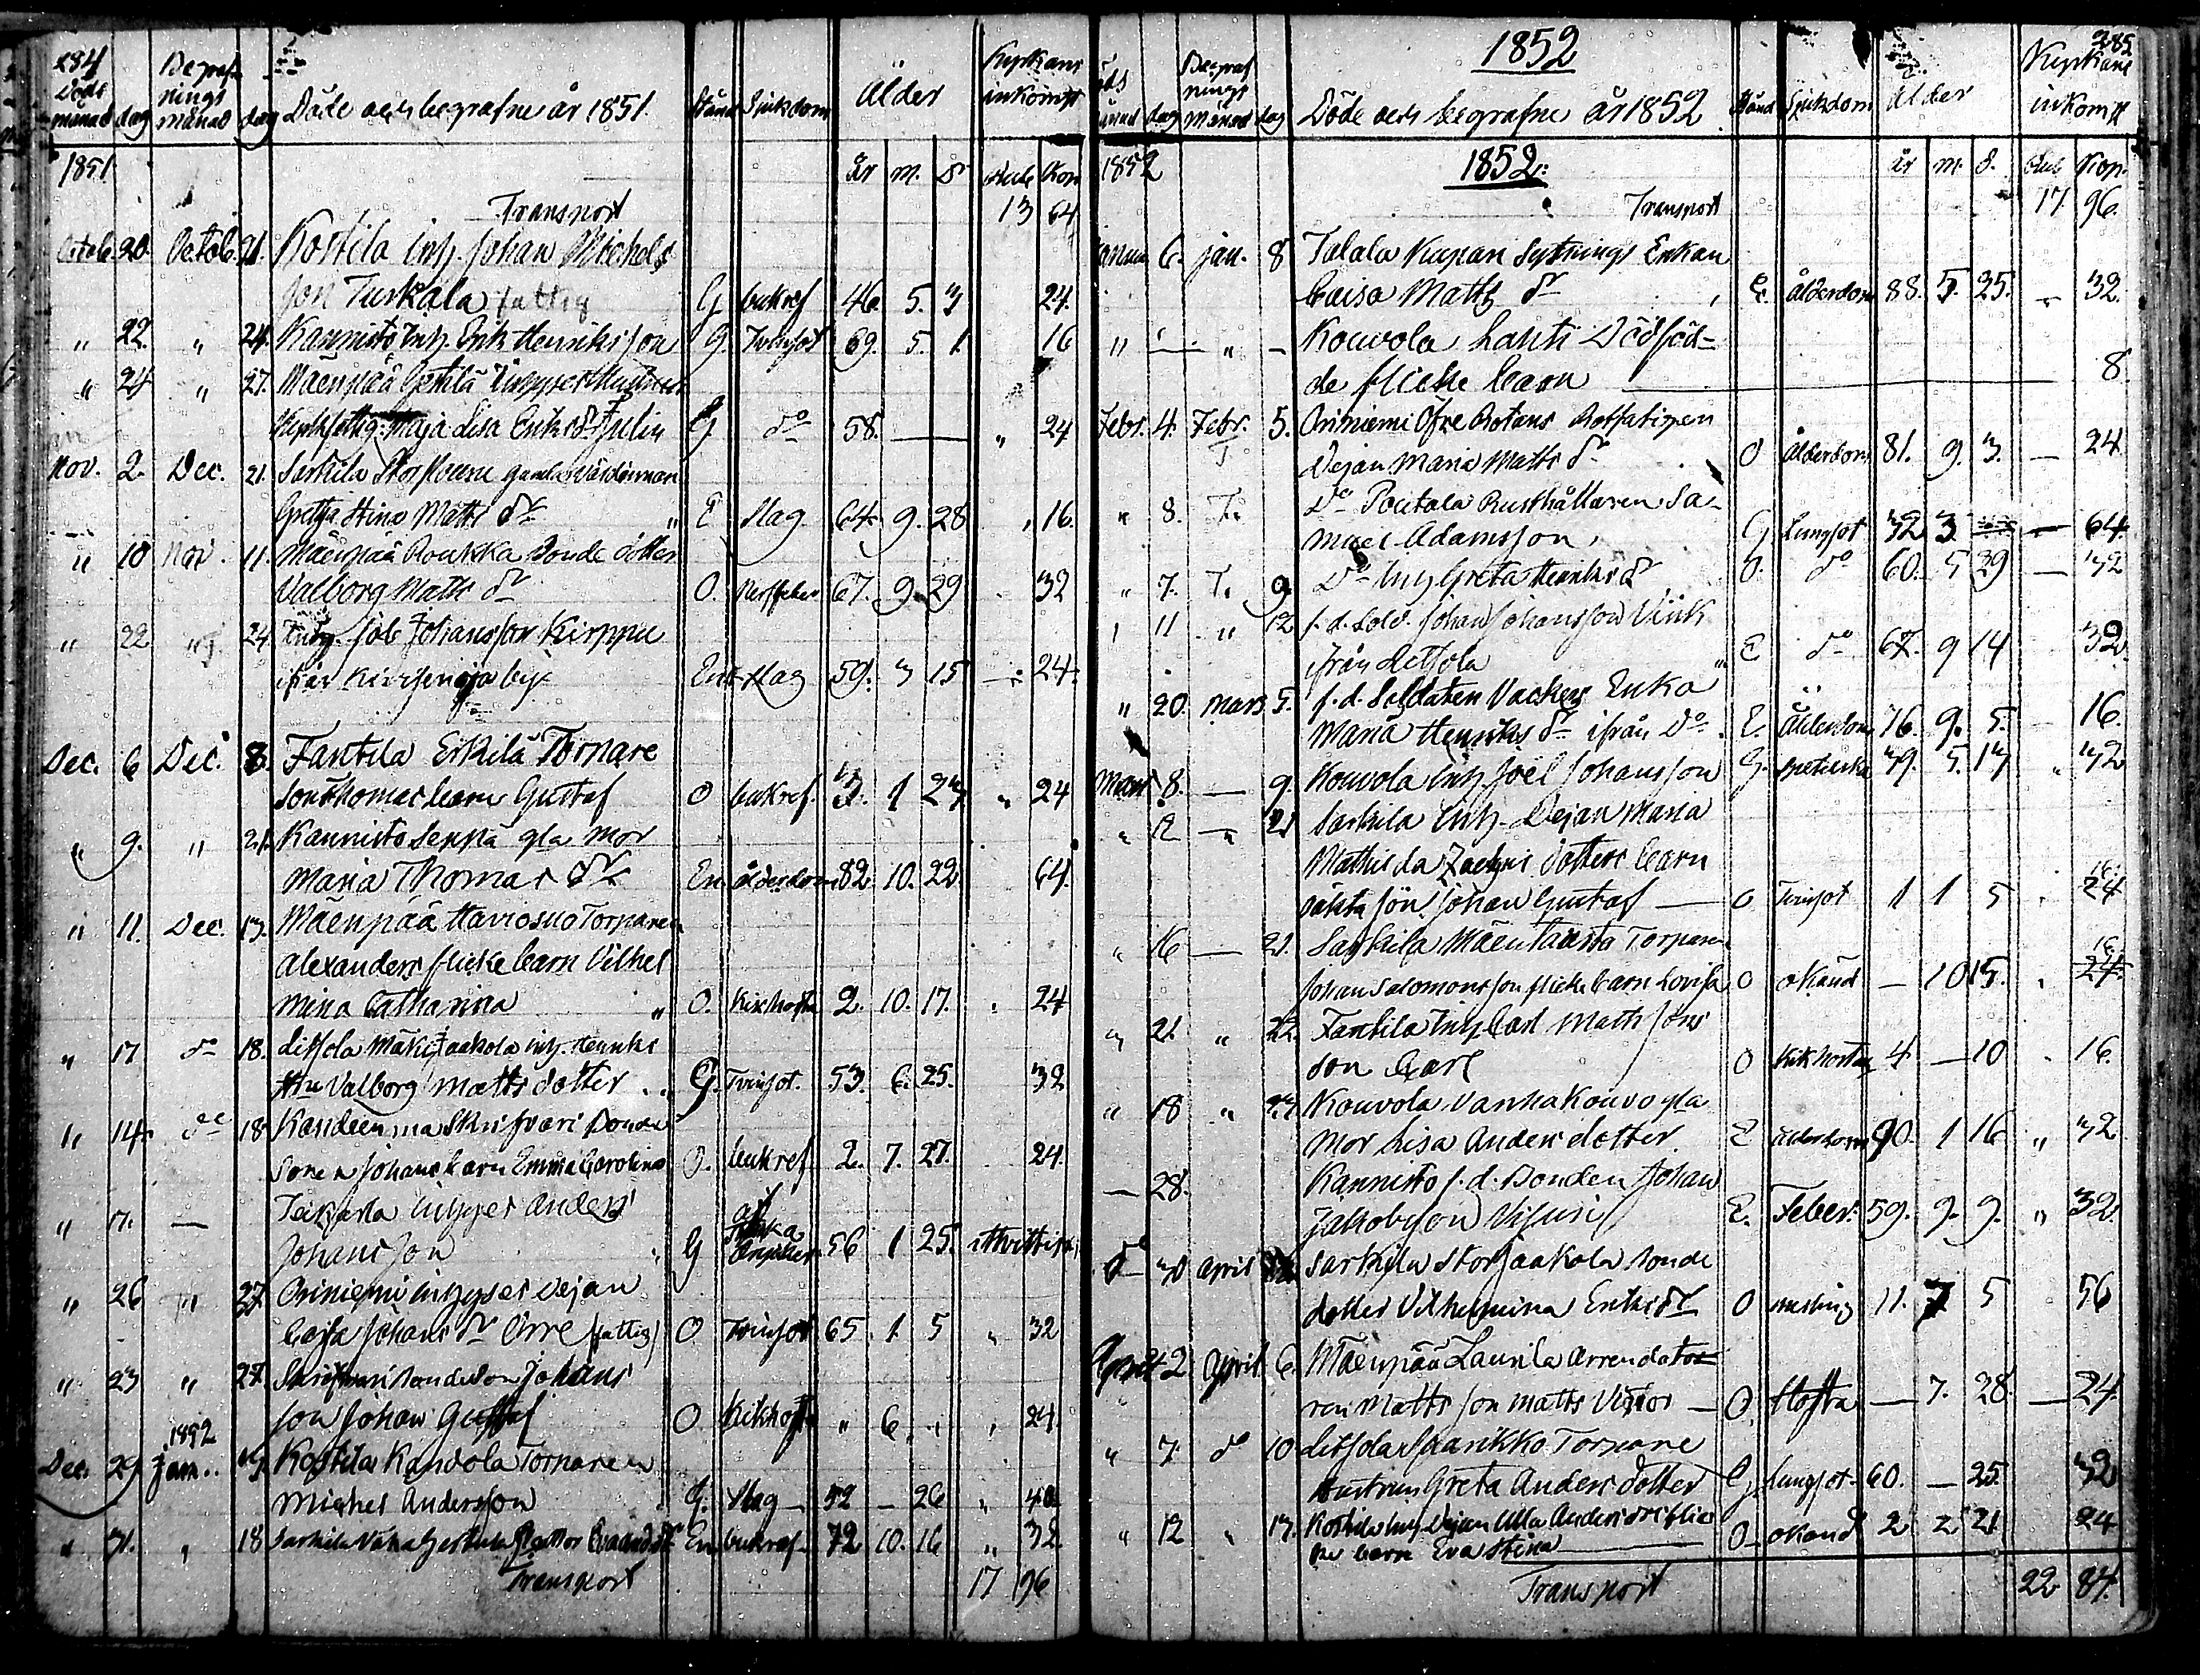 284
Döds månad dag
Begrafnings månad dag
Döde och begrafne år 1851.
Stånd Sjukdom Ålder Kyrkans inkomst
1851.
år m. dr Rub. Kop.
Transport 13 64
Octob. 20. Octob. 21. Kostila Inh. Johan Michels
son Tuskala fattig G bukref 46. 5. 3 24.
" 22. " 24. Kannisto Inh. Erik Henriksson G. Tvinsot 69. 5. 1. 16
" 24 " 27. Mäenpää
Maja Lisa Eriks dr Julin G do 58. — " 24
Nov. 2. Dec. 21. Sarkila
Greta Stina Matts dr E Slag 64. 9. 28 16.
" 10 Nov. 11. Mäenpää Roukka Bonde dotter
Valborg Matts dr O. 67. 9. 29 32
" 22 " 24. Inh. Job Johansson Kirppu
ifrån by Enk Slag 59. 3 15 — 24.
Dec. 6 Dec. 8. Fantila Erkilä Torpare
son Thomas barn Gustaf O bukref. 3. 1 23 " 24
" 9. " 21. Kannisto Seppä gla mor
Maria Thomas dr En ålderdom 82. 10. 22. 64.
" 11. Dec. 13. Mäenpää Haviosuo Torparen
Alexanders flicke barn Vilhel
mina Catharina O. Kikhosta 2. 10. 17. 24
" 17 do 18. Litsola Mäki Jaakola Inh. Henriks
Hu Valborg Matts dotter G. Tvinsot. 53. 6. 25. 32
" 14. do 18 Skrifvari Bonde
sonen Johans barn Emma Carolina O. bukref 2. 7. 27. 24.
" 17. — Inhyses Anders
Johansson G 56 1 25.
" 26 " 27. Oriniemi inhyses Dejan
Cajsa Johans dr Orre (fattig) O Tvinsot 65. 1. 5 " 32
" 23 " 27. Skrifvari bondeson Johans
son Johan Gustaf O Kikhosta " 6 " " 24.
1852
Dec. 29 Jan. Kostila Kandola Torparen
Michel Andersson G. Slag — 52 — 26 " 40.
" 31. " 18 Sarkila En bukref 72 10. 16 " 32.
Transport 17 96
285
1852
Döds månad dag
Begrafnings månad dag
Döde och begrafne år 1852
Stånd Sjukdom Ålder Kyrkans inkomst
1852
1852.
år m. d. Rub. Kop.
Transport 17 96.
Januar 6. Jan. 8 Talala Sytnings Enkan
Caisa Matts dr E. Ålderdom 88. 5. 25. " 32.
" — " — Kouvola Lahti Dödföd-
de flicke barn — 8.
Febr. 4. Febr. 5. Oriniemi Öfre
Dejan Maria Matts dr O Ålderdom 81. 9. 3. — 24
" 8. Do Poutala Rusthållaren Sa-
muel Adamsson, G Lungsot 32 3 — 64.
" 7. 9. Do Inh Greta Henriks dr O. do 60. 5 29 — 32
" 11 " 12 f. d. Sold. Johan Johansson Vink
ifrån Litsola E do 67. 9 14 32.
" 20. Mars 5. f. d. Soldaten Vackers Enka
Maria Henriks dr ifrån do. E. Ålderdom 76. 9. 5. — 16.
Mars 8. — 9. Kouvola Inh Joel Johansson G. 39. 5. 13 " 32
" 12 — " 21 Sarkila Inh. Dejan Maria
Mathilda Zachris dotters barn 16.
oäkta son Johan Gustaf — O Tvinsot 1 1 5 . 24
" 16 — 21. Sarkila Mäentausta Torparen 16
Johan Salomonsson flicke barn Lovisa O okänd — 10 15. . 24.
" 21. " 22. Fantila Inh Carl Matts sons
son Carl O Kikhosta 4. — 10 . 16.
" 18 " Kouvola Vanhakouvo gla
mor Lisa Anders dotter E ålderdom 90. 1 16 " 32
— 28. Kannisto f. d. Bonden Johan
Jakobsson E. Feber. 59. 9. 9. " 32.
do 30 April Sarkila Storjaakola bonde
dotter Vilhelmina Eriks dr O 11. 7 5 56
April 2 April 6. Mäenpää Laurila Arrendato-
ren Matts son Matts Victor — O. Hosta — 7. 28. — 24.
" 7. do 10 Litsola Torpare
Hustrun Greta Anders dotter G. Lungsot 60. — 25. 32
" 12 " 13. Kostila Inh. Dejan Ulla Anders dr flic
ke barn Eva Stina — O. okänd 2 2 21 24
Transport 22 84.